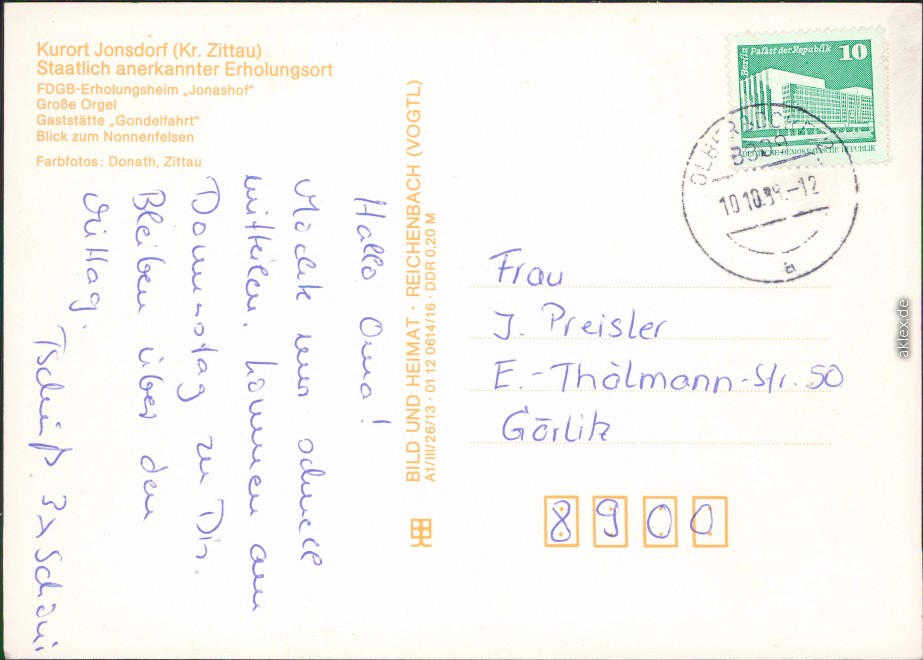 Kurort Jonsdorf (Kr. Zittau)
Staatlich anerkannter Erholungsort
FDGB-Erholungsheim „Jonashof“
Große Orgel
Gaststätte „Gondelfahrt“
Blick zum Nonnenfelsen
Farbfotos: Donath, Zittau
Hallo Oma!
Möchte nur schnell
mitteilen, kommen am
Donnerstag zu Dir.
Bleiben über den
Mittag.
Tschüß 3x Schöni
BILD UND HEIMAT · REICHENBACH (VOGTL)
A1/III/26/13 · 01 12 0614/16 · DDR 0,20 M
Berlin Palast der Republik 10
DEUTSCHE DEMOKRATISCHE REPUBLIK
OLBERSDORF
10.10.89.-12
a
Frau
J. Preisler
E.-Thälmann-Str. 50
Görlitz
8900
aklex.de